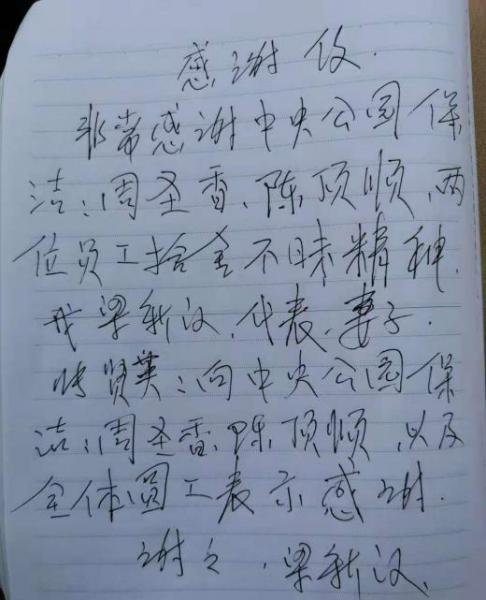 感谢信.
非常感谢中央公园保
洁:周圣香、陈顶顺、两
位员工拾金不昧精神.
我梁新汉,代表,妻子.
贤英:向中央公园保
洁:周圣香、陈顶顺,以及
全体圆工表示感谢.
谢之.梁新汉.